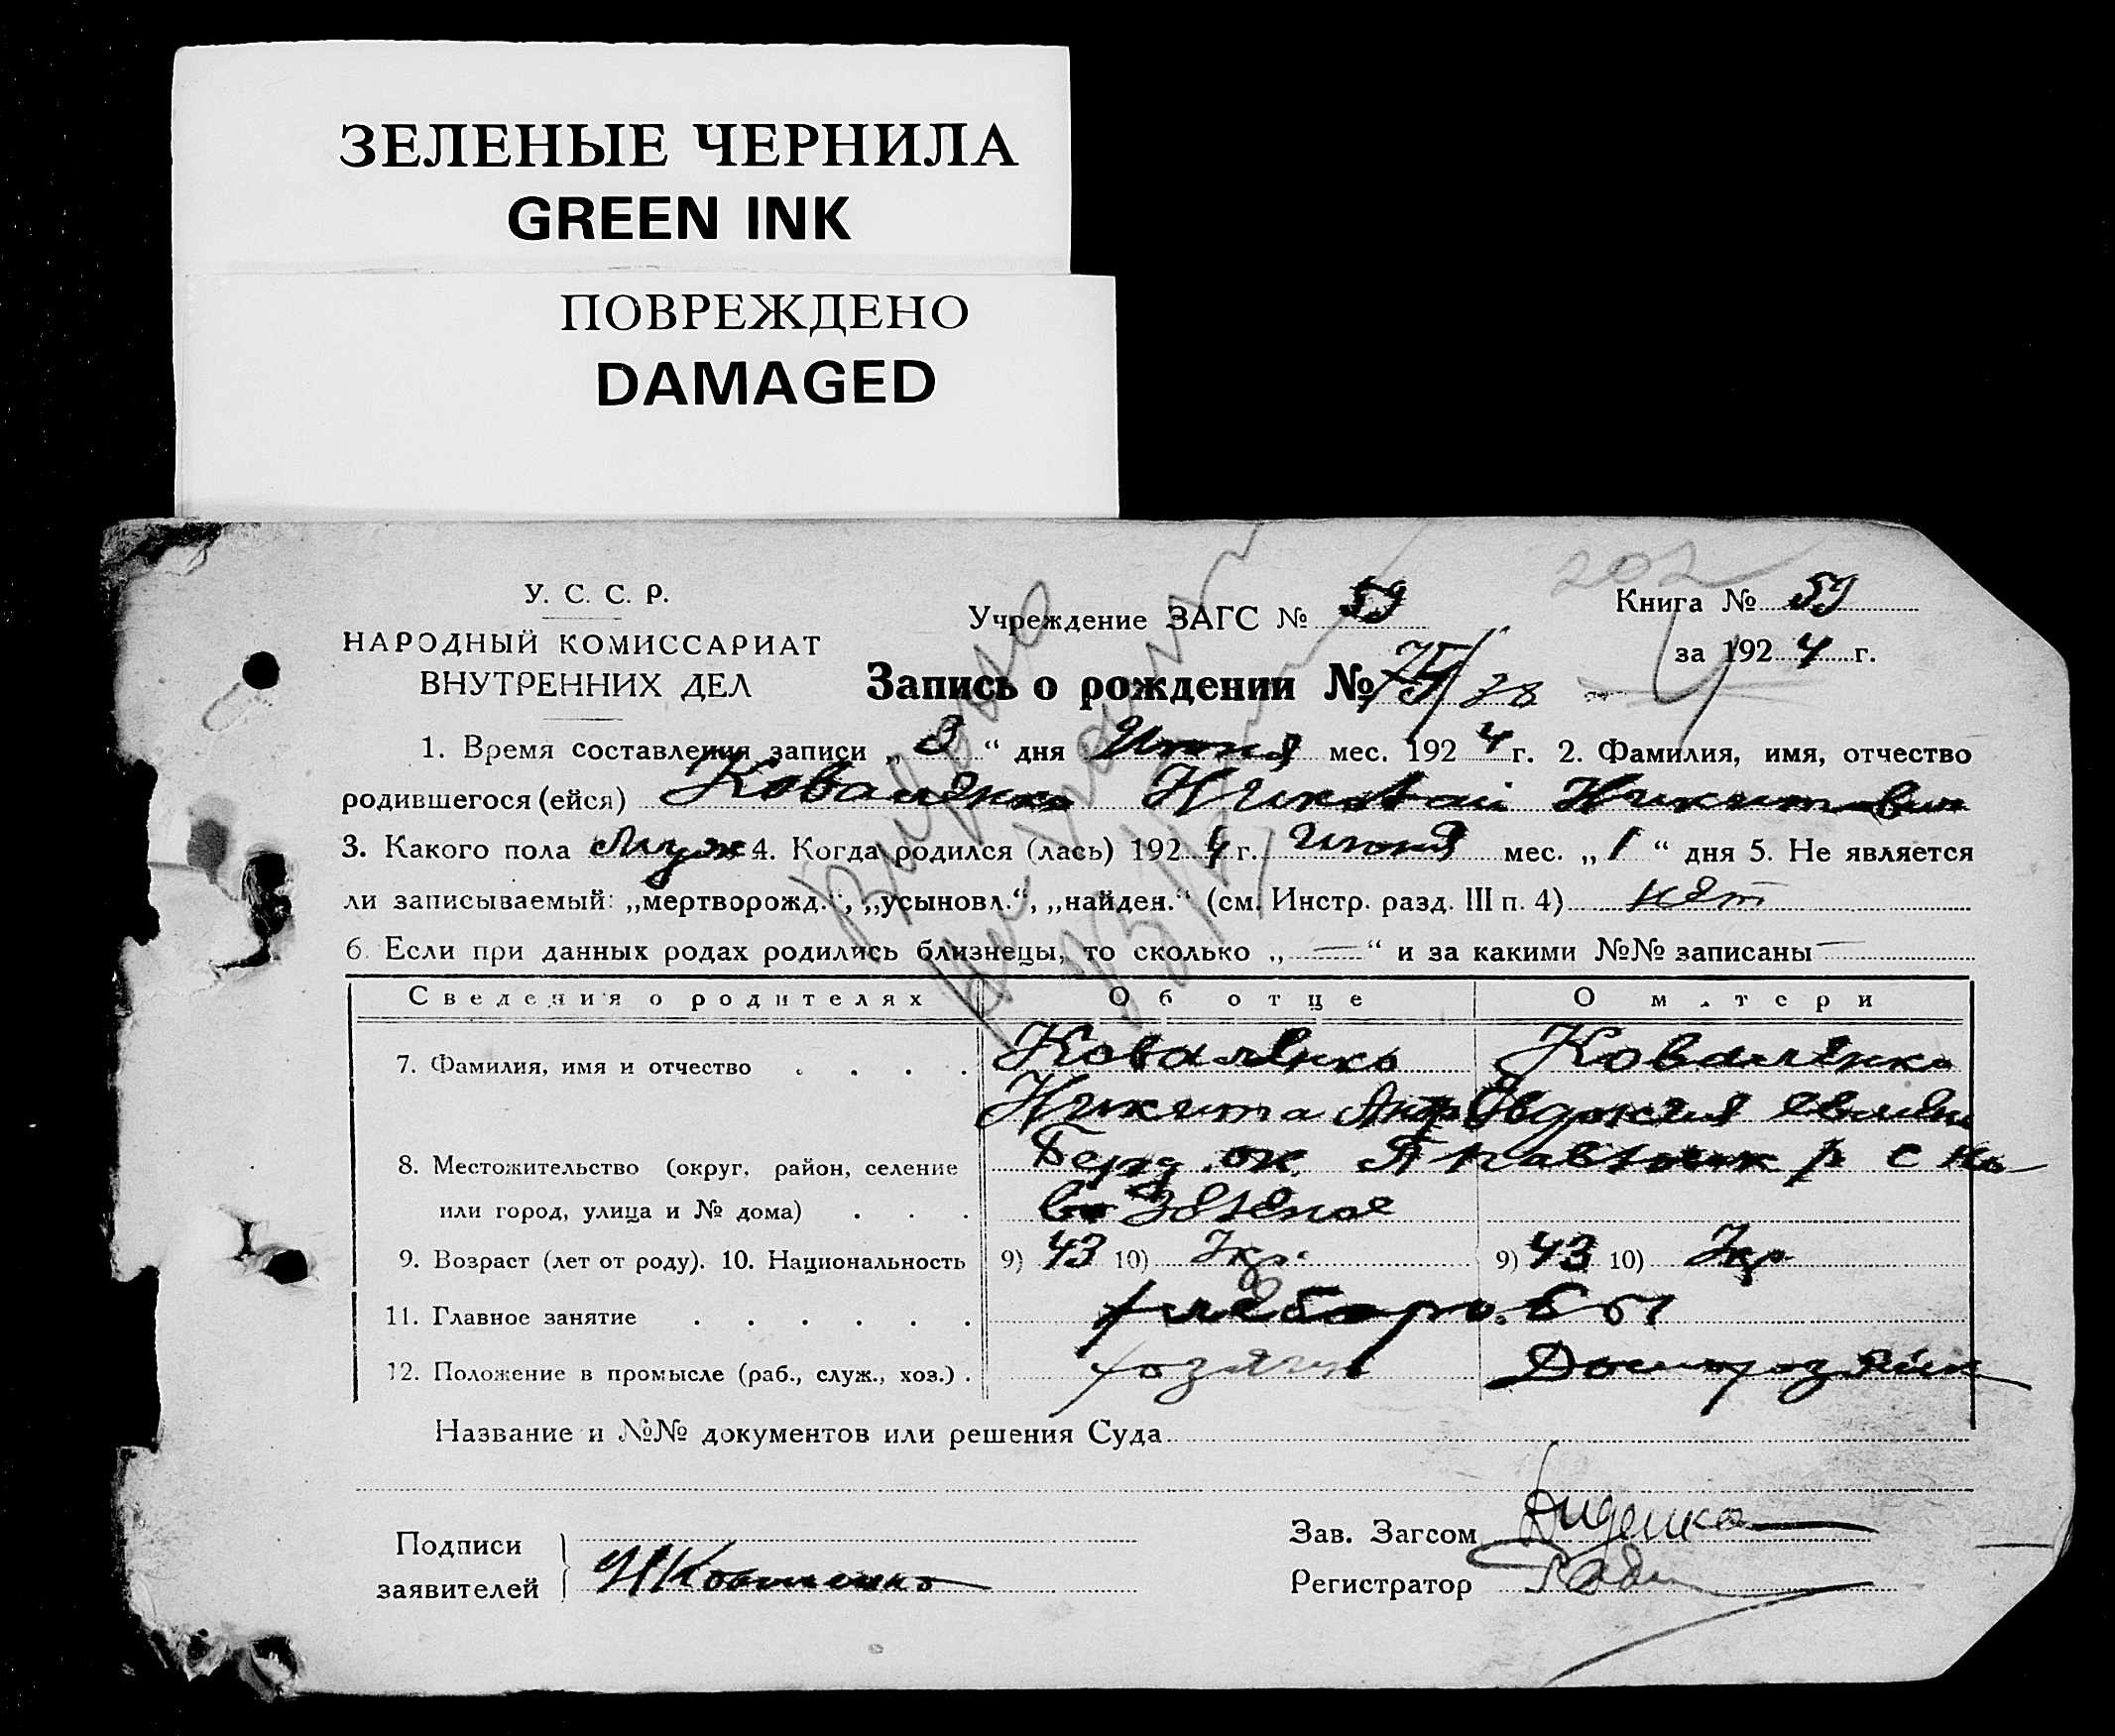 ЗЕЛЕНЫЕ ЧЕРНИЛА
GREEN INK
ПОВРЕЖДЕНО
DAMAGED
202
У. С. С. Р.
НАРОДНЫЙ КОМИССАРИАТ
ВНУТРЕННИХ ДЕЛ
Учреждение ЗАГС № 59
Книга № 59
за 1924 г.
Запись о рождении № 75/38
1. Время составления записи „3“ дня Июня мес. 1924 г. 2. Фамилия, имя, отчество
родившегося (ейся) Коваленко Николай Никитович
3. Какого пола Муж 4. Когда родился (лась) 1924 г. июня мес. „1“ дня 5. Не является
ли записываемый: „мертворожд.“, „усыновл.“, „найден.“ (см. Инстр. разд. III п. 4) нет
6. Если при данных родах родились близнецы, то сколько „—“ и за какими №№ записаны —
Сведения о родителях Об отце О матери
7. Фамилия, имя и отчество Коваленко Коваленко
Никита Евдокия
8. Местожительство (округ, район, селение Берд. ок. р с Но
или город, улица и № дома) во
9. Возраст (лет от роду). 10. Национальность 9) 43 10) Укр. 9) 43 10) Укр
11. Главное занятие хлебороб
12. Положение в промысле (раб., служ., хоз.) хозяин Домохозяйк
Название и №№ документов или решения Суда
Подписи
заявителей Н Коваленко
Зав. Загсом Диденко
Регистратор